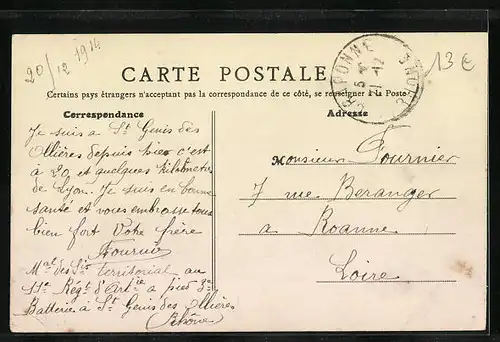 20/12 1914
13€
CARTE POSTALE
Certains pays étrangers n'acceptant pas la correspondance de ce côté, se renseigner à la Poste
Correspondance
Adresse
Je suis a St Genis des
Ollières depuis hier c'est
à 20 et quelques kilomètres
de Lyon. Je suis en bonne
santé et vous embrasse tous
bien fort Votre frère
Fournier
Mal des Lis territorial au
11e Régt d'Artie a pied 3e
Batterie à St Genis des Ollières
Rhône
Monsieur Fournier
7 rue Beranger
a Roanne
Loire